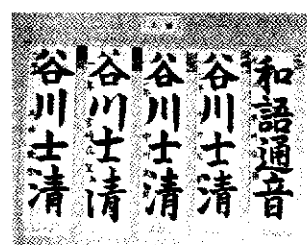 和語通音
谷川士清
谷川士清
谷川士清
谷川士清